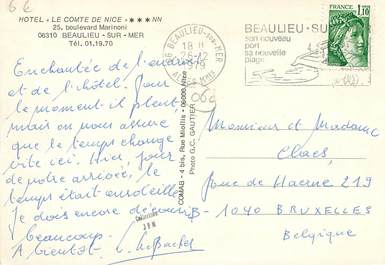 6 €
HOTEL - LE COMTE DE NICE - ★★★ NN
25, boulevard Marinoni
06310 BEAULIEU - SUR - MER
Tél. 01.19.70
Enchantée de l'endroit
et de l'hôtel. Pour
le moment il pleut
mais on nous assure
que le temps change
vite ici. Hier, jour
de notre arrivée, le
temps était ensoleillé
je dois encore découvrir
beaucoup.
A bientôt.
COMAG - 4 bis, Rue Miollis - 06000 Nice
Photo G.C. GAUTIER
06 BEAULIEU-SUR-MER
18 H
26-12
ALPES-MMES
BEAULIEU - SUR
son nouveau
port
sa nouvelle
plage
1,10
06c
Monsieur et Madame
Claes,
Rue de Haerne 219
1040 BRUXELLES
Belgique